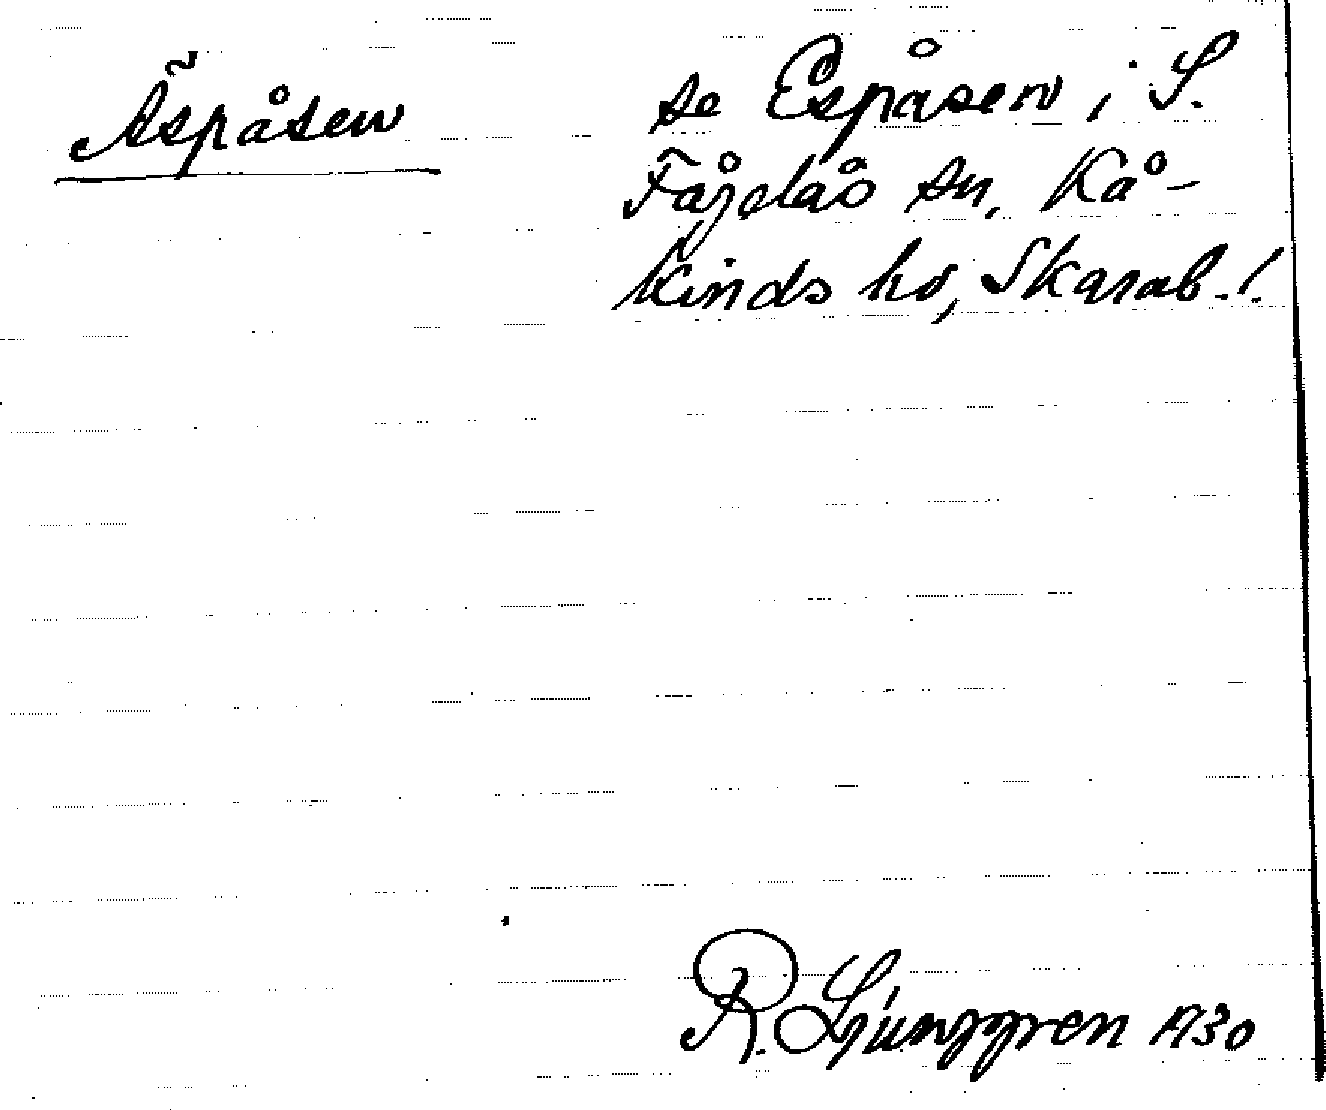 Äspåsen
se Espåsen i S.
Fågelås sn, Kå-
kinds hd, Skarab. l.
R. Ljunggren 1930